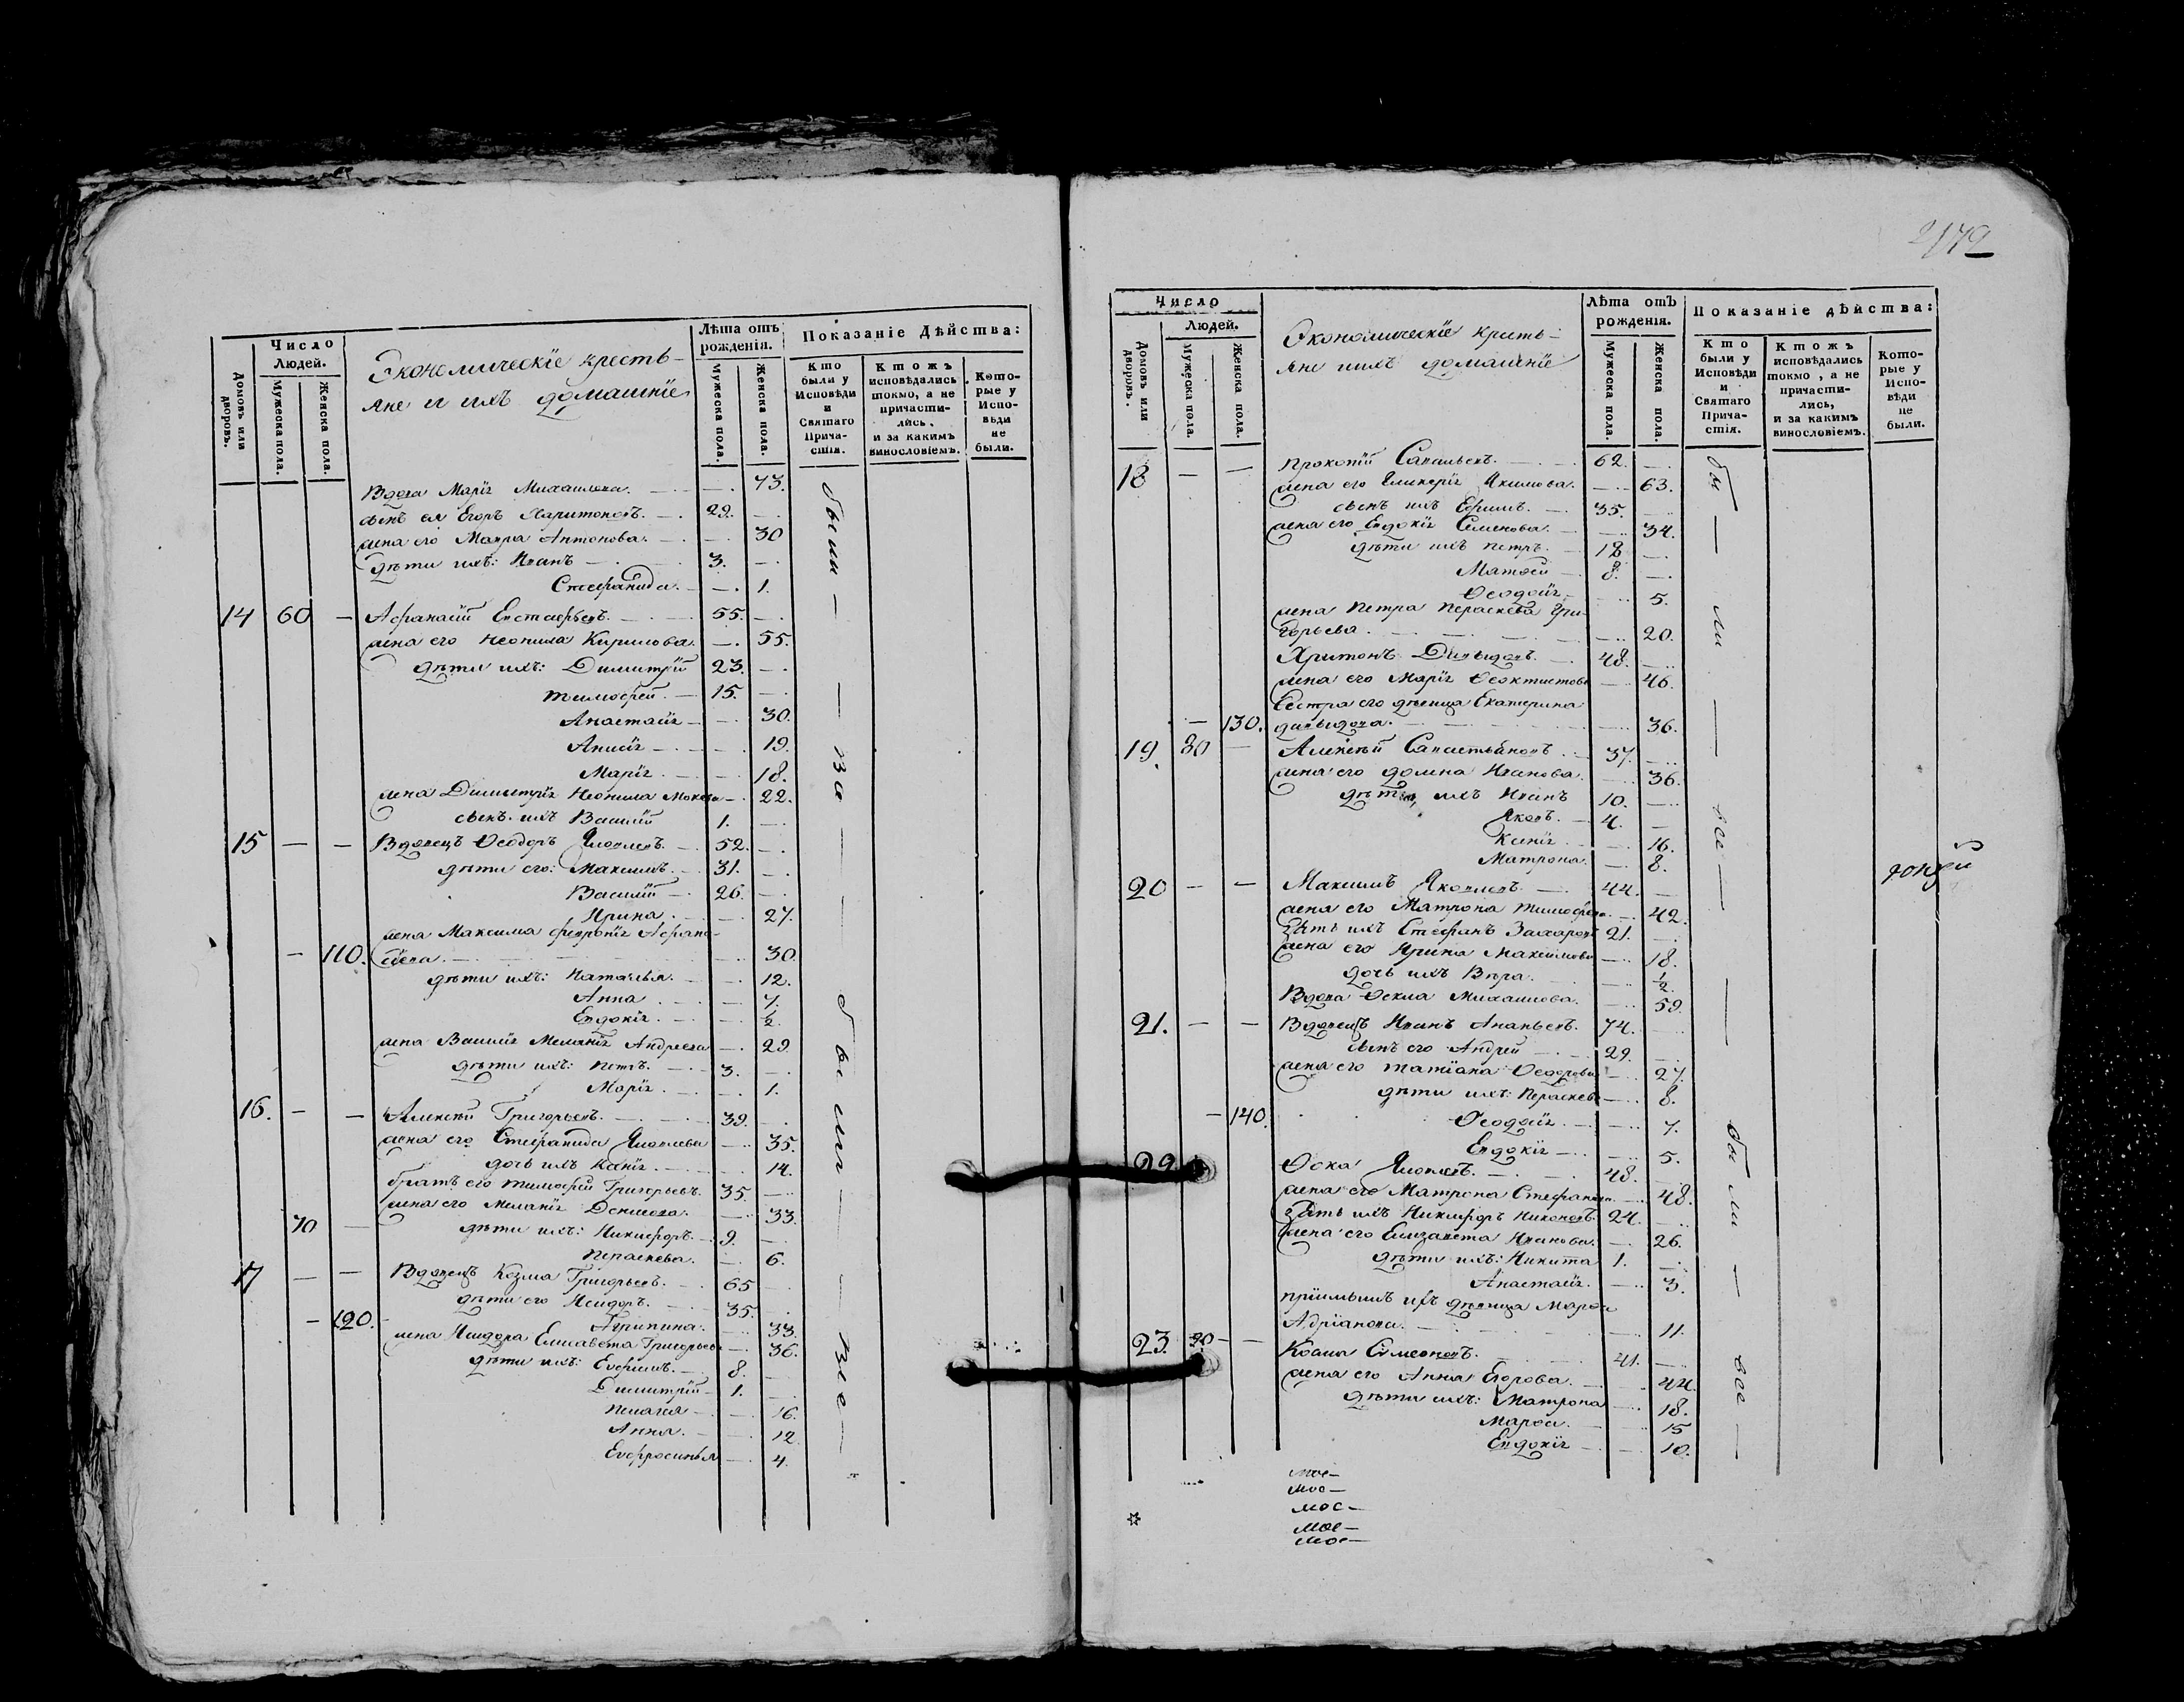 Число
Людей.
Домовъ или дворовъ.
Мужеска пола.
Женска пола.
Экономическіе кресть-
яне и ихъ домашніе
Лѣта отъ рожденія.
Мужеска пола.
Женска пола.
Показаніе Дѣйства:
Кто были у Исповѣди и Святаго Прича-стія.
Ктожъ исповѣдались токмо, а не причасти-лись, и за какимъ винословіемъ.
Кото-рые у Испо-вѣди не были.
Вдова Марія Михаилова. — 73.
сынъ ея Егоръ Харитоновъ. 29. —
жена его Мавра Антонова. — 30
дѣти ихъ: Иванъ 3. —
Стефанида. — 1.
14 60 — Афанасій Евстафьевъ. 55. —
жена его Неонила Кирилова. — 55.
дѣти ихъ: Димитрій 23. —
Тимофей. 15. —
Анастасія — 30.
Анисія — 19.
Марія — 18.
жена Димитрія Неонила Мокеева — 22.
сынъ ихъ Василій 1. —
15 — — Вдовецъ Ѳеодоръ Яковлевъ. 52. —
дѣти его: Максимъ. 31. —
Василій 26. —
Ирина. — 27.
жена Максима Февронія Афана-
— 110. сьева. — 30.
дѣти ихъ: Наталья. — 12.
Анна — 7.
Евдокія. — ½.
жена Василія Меланія Андреева — 29
дѣти ихъ: Петръ. 3. —
Марія. — 1.
16. — — Алексѣй Григорьевъ. 39. —
жена его Стефанида Яковлева — 35.
дочь ихъ Ксенія. — 14.
братъ его Тимофей Григорьевъ. 35. —
жена его Меланія Денисова. — 33.
70 — дѣти ихъ: Никифоръ. 9. —
Параскева. — 6.
17 — — Вдовецъ Козма Григорьевъ. 65 —
дѣти его Исидоръ. 35. —
— 120. Агрипина. — 33.
жена Исидора Елисавета Григорьева — 36.
дѣти ихъ: Евфимъ. 8. —
Димитрій 1. —
Пелагея — 16.
Анна. — 12
Евфросинья — 4.
были — — на — — были — — все —
2172
Число
Людей.
Домовъ или дворовъ.
Мужеска пола.
Женска пола.
Экономическіе кресть-
яне и ихъ домашніе
Лѣта отъ рожденія.
Мужеска пола.
Женска пола.
Показаніе дѣйства:
Кто были у Исповѣди и Святаго Прича-стія.
Ктожъ исповѣдались токмо, а не причасти-лись, и за какимъ винословіемъ.
Кото-рые у Испо-вѣди не были.
18 — — Прокопій Савельевъ. 62. —
жена его Гликерія Якимова. — 63.
сынъ ихъ Ефимъ. 35. —
жена его Евдокія Семенова. — 34.
дѣти ихъ Петръ. 18 —
Матѳей 8. —
Ѳеодосія — 5.
жена Петра Параскева Гри-
горьева. — 20.
Харитонъ Давыдовъ. 48. —
жена его Марія Ѳеоктистова — 46.
Сестра его дѣвица Екатерина
— 130. Давыдова. — 36.
19. 80 — Алексѣй Савастьяновъ. 37. —
жена его Домна Иванова. — 36.
дѣти ихъ Иванъ 10. —
Яковъ. 4. —
Ксенія — 16.
Матрона. — 8.
20 — — Максимъ Яковлевъ. 44. —
жена его Матрона Тимофеева. — 42.
Зять ихъ Стефанъ Захаровъ 21. —
жена его Ирина Максимова — 18.
дочь ихъ Вѣра. — ½.
Вдова Ѳекла Михаилова. — 59.
21. — — Вдовецъ Иванъ Ананьевъ. 74. —
сынъ его Андрей 29. —
жена его Татіана Ѳеодорова — 27.
дѣти ихъ: Параскева — 8.
— 140. Ѳеодосія. — 7.
Евдокія — 5.
22. Ѳока Яковлевъ. 48. —
жена его Матрона Стефанова — 48.
Зять ихъ Никифоръ Никоновъ 24. —
жена его Елизавета Иванова. — 26.
дѣти ихъ: Никита 1. —
Анастасія. — 3.
пріимышъ ихъ дѣвица Марѳа
Адріанова. — 11.
23. 90 — Козма Симеоновъ. 41. —
жена его Анна Егорова. — 44.
дѣти ихъ: Матрона — 18.
Марѳа. — 15
Евдокія — 10.
бы — ли — все — — были — все —
мос—
мос—
мос—
мос—
мос—